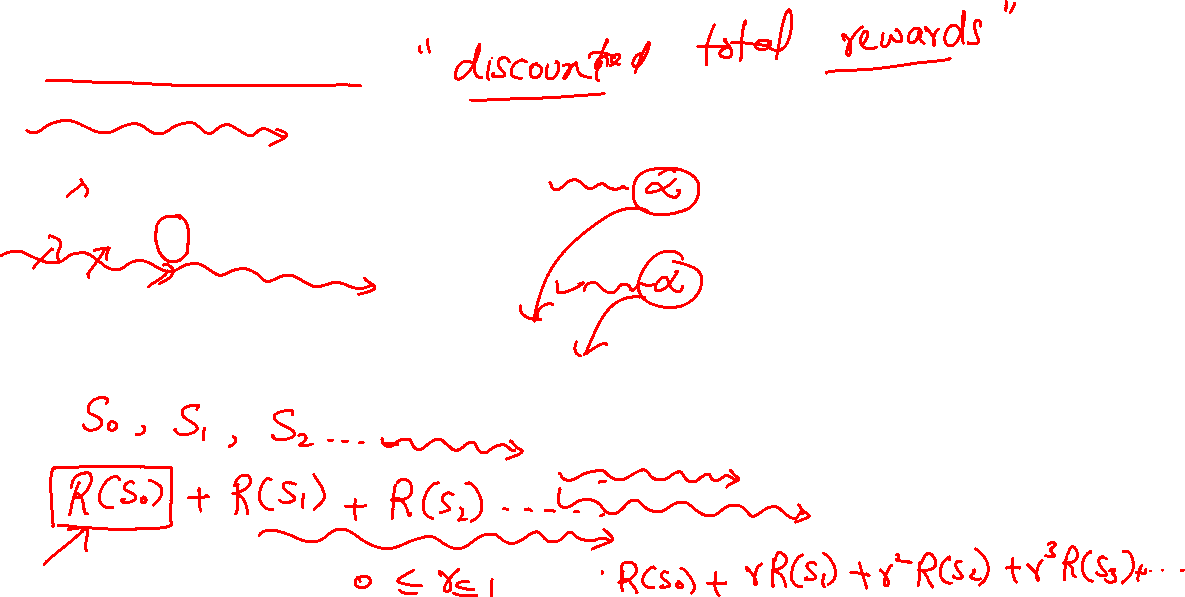 "discounted total rewards"
α
α
S₀, S₁, S₂ ....
R(S₀) + R(S₁) + R(S₂) ......
0 ≤ γ ≤ 1
R(S₀) + γR(S₁) + γ²R(S₂) + γ³R(S₃) + ....